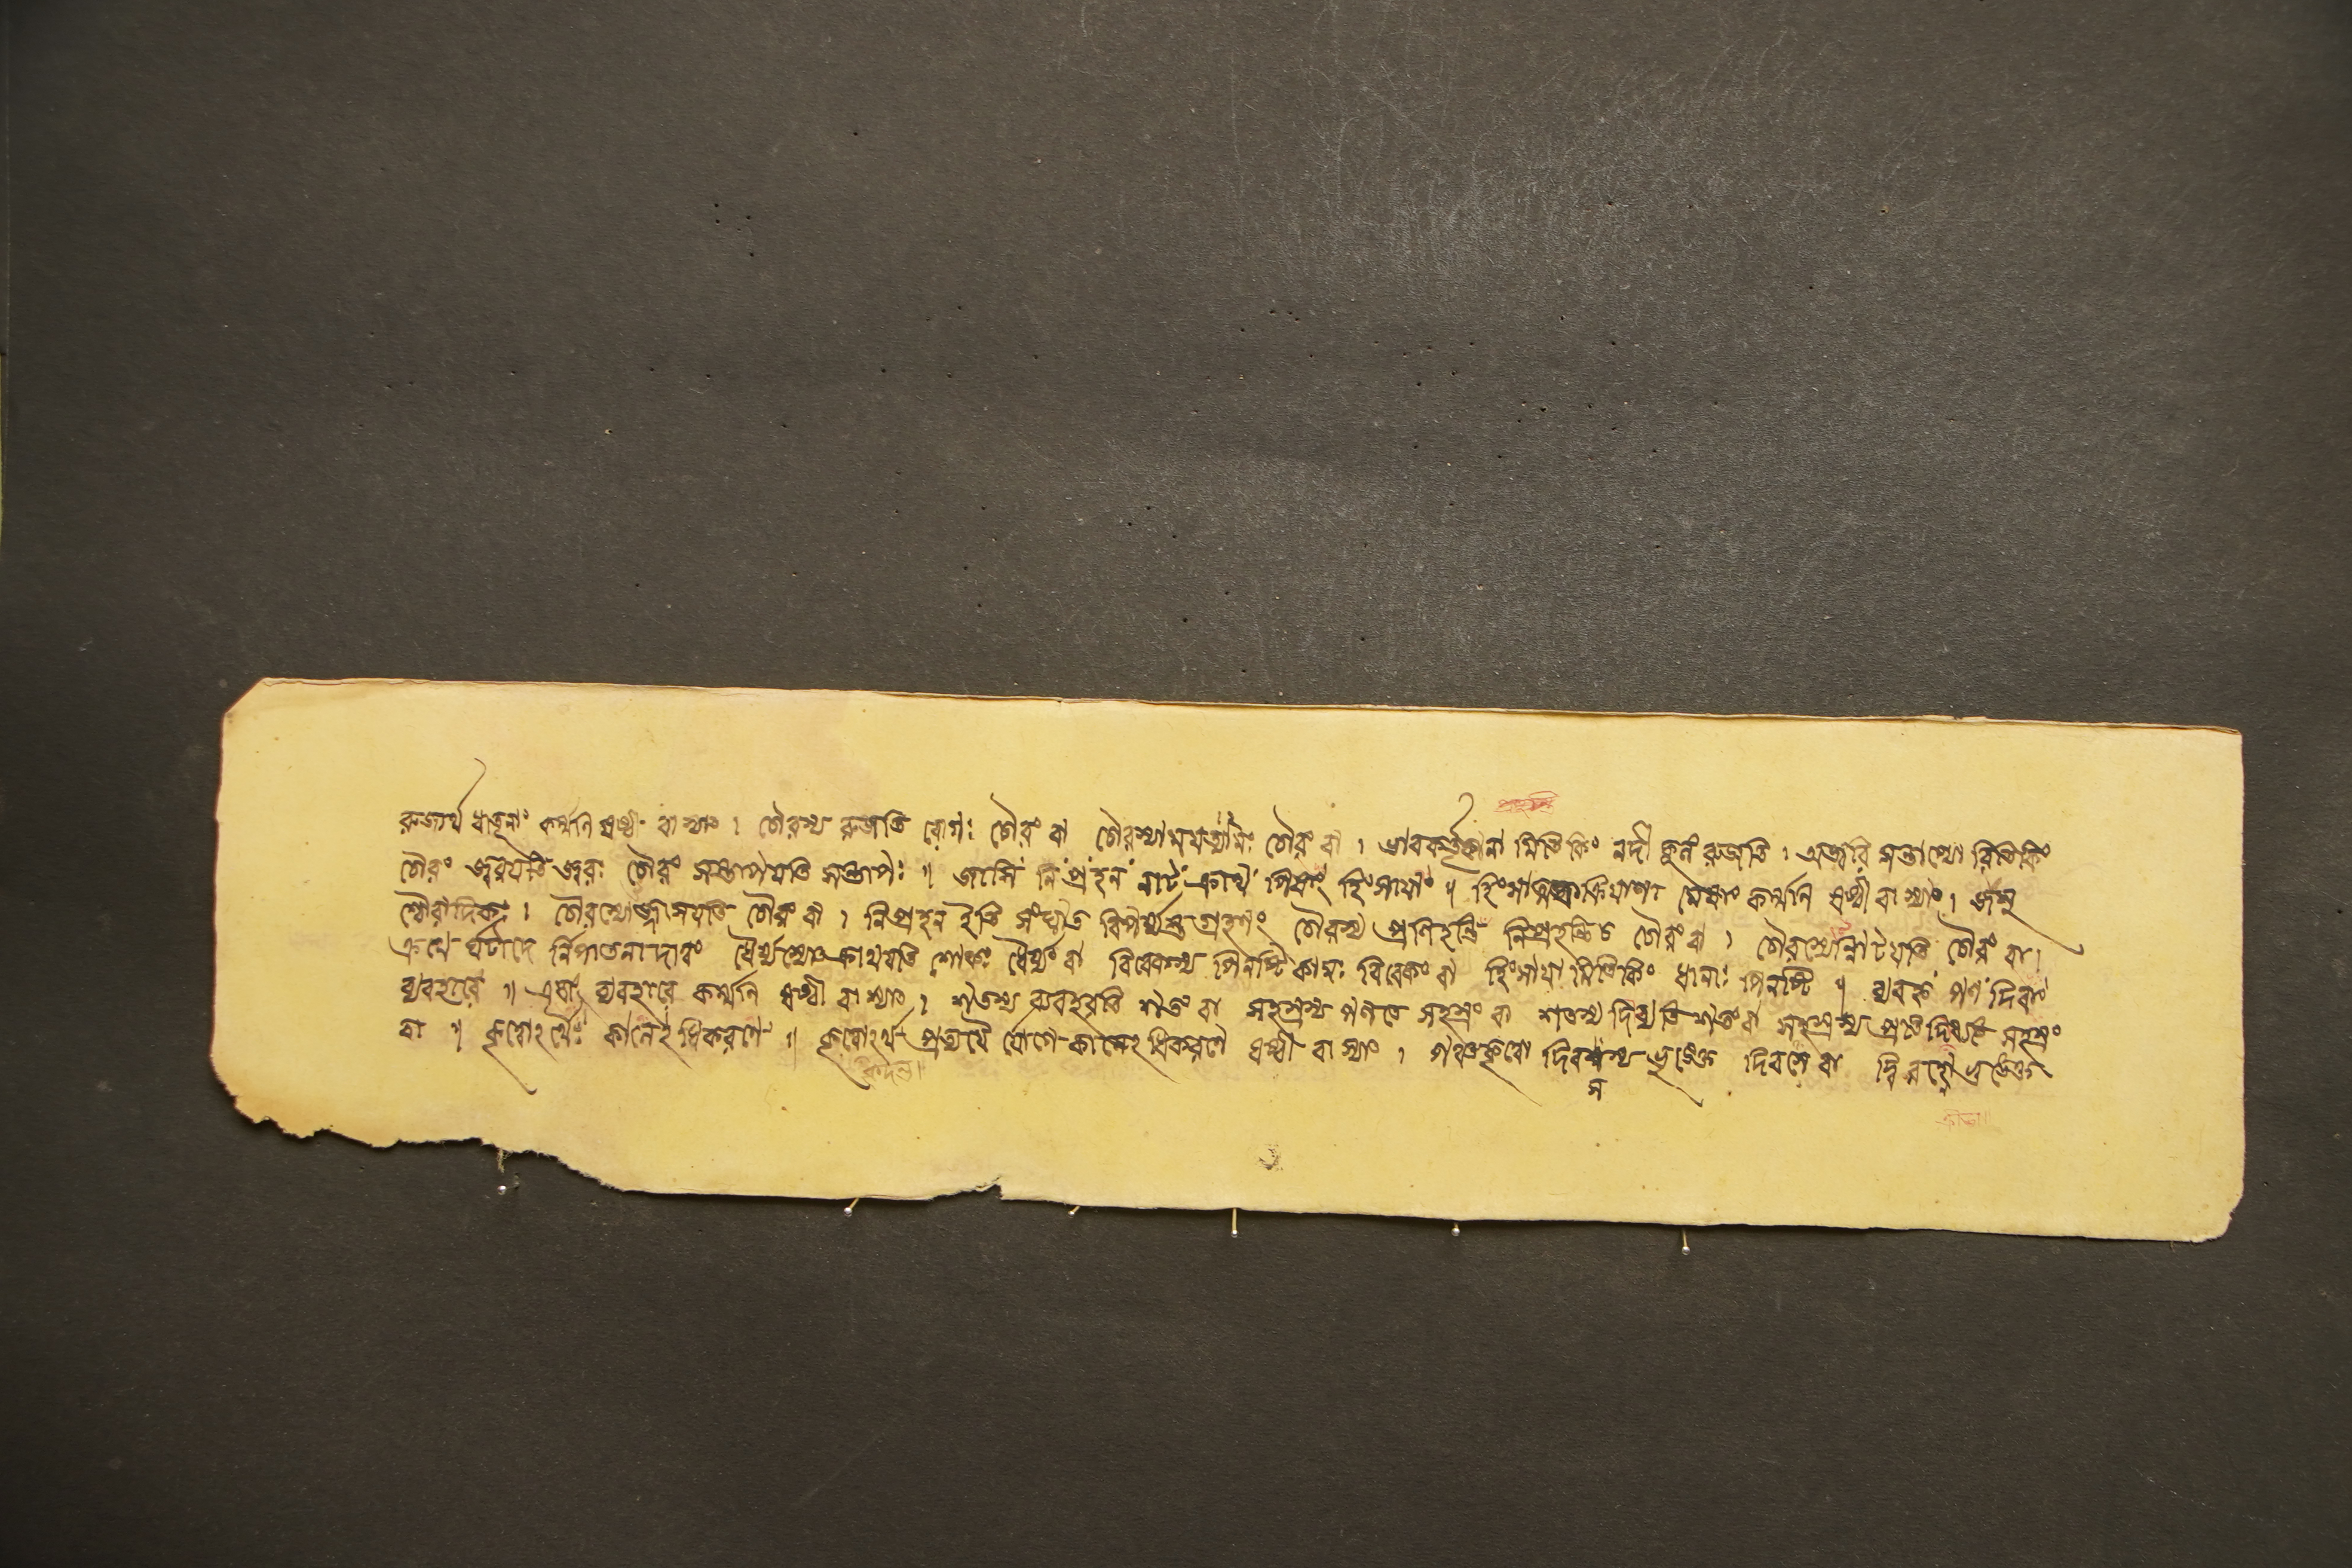 রুজার্থ ধাতূনাং কর্ম্মনি ষষ্ঠী বা স্যাৎ । চৌরস্য রুজতি রোগঃ চৌরং বা চৌরস্যাময়ত্যামঃ চৌরং বা । ভাবকর্তৃকানা মিতিকিং নদী কুলং রুজতি । অজ্বরি সন্তাপ্যো রিতিকিং
চৌরং জ্বরয়তি জ্বরঃ চৌরং সন্তাপয়তি সন্তাপঃ ॥ জাসি নিপ্রহন নাট ক্রাথ পিষাং হিংসায়াং ॥ হিংসাত্মকক্রিয়াণা মেষাং কর্ম্মনি ষষ্ঠী বা স্যাৎ । জসু
শ্চৌরাদিকঃ । চৌরস্যোজ্জাসয়তি চৌরং বা । নিপ্রহন ইতি সংঘাত বিপর্য্যস্ত গ্রহণং চৌরস্য প্রণিহন্তি নিপ্রহন্তিচ চৌরং বা । চৌরস্যোন্নাটয়তি চৌরং বা ।
ক্রথে র্ঘটাদে র্নিপাতনাদাত্বং ধৈর্য্যস্যোৎক্রাথয়তি শোকঃ ধৈর্য্যং বা বিবেকস্য পিনষ্টি কামঃ বিবেকং বা হিংসায়া মিতিকিং ধানাঃ পিনষ্টি ॥ ব্যবহৃ পণ দিবাং
ব্যবহারে ॥ এষাং ব্যবহারে কর্ম্মনি ষষ্ঠী বা স্যাৎ । শতস্য ব্যবহরতি শতং বা সহস্রস্য পণতে সহস্রং বা শতস্য দিব্যতি শতং বা সহস্রস্য প্রতিদিব্যতি সহস্রং
বা ॥ কৃত্বোঽর্থে কালেঽধিকরণে ॥ কৃত্বোঽর্থ প্রত্যয়ৈ র্যোগে কালেঽধিকরণে ষষ্ঠী বা স্যাৎ । পঞ্চকৃত্বো দিবসস্য ভুঙ্‌ক্তে দিবসে বা দ্বি রহ্নো ভুঙ্‌ক্তে
স